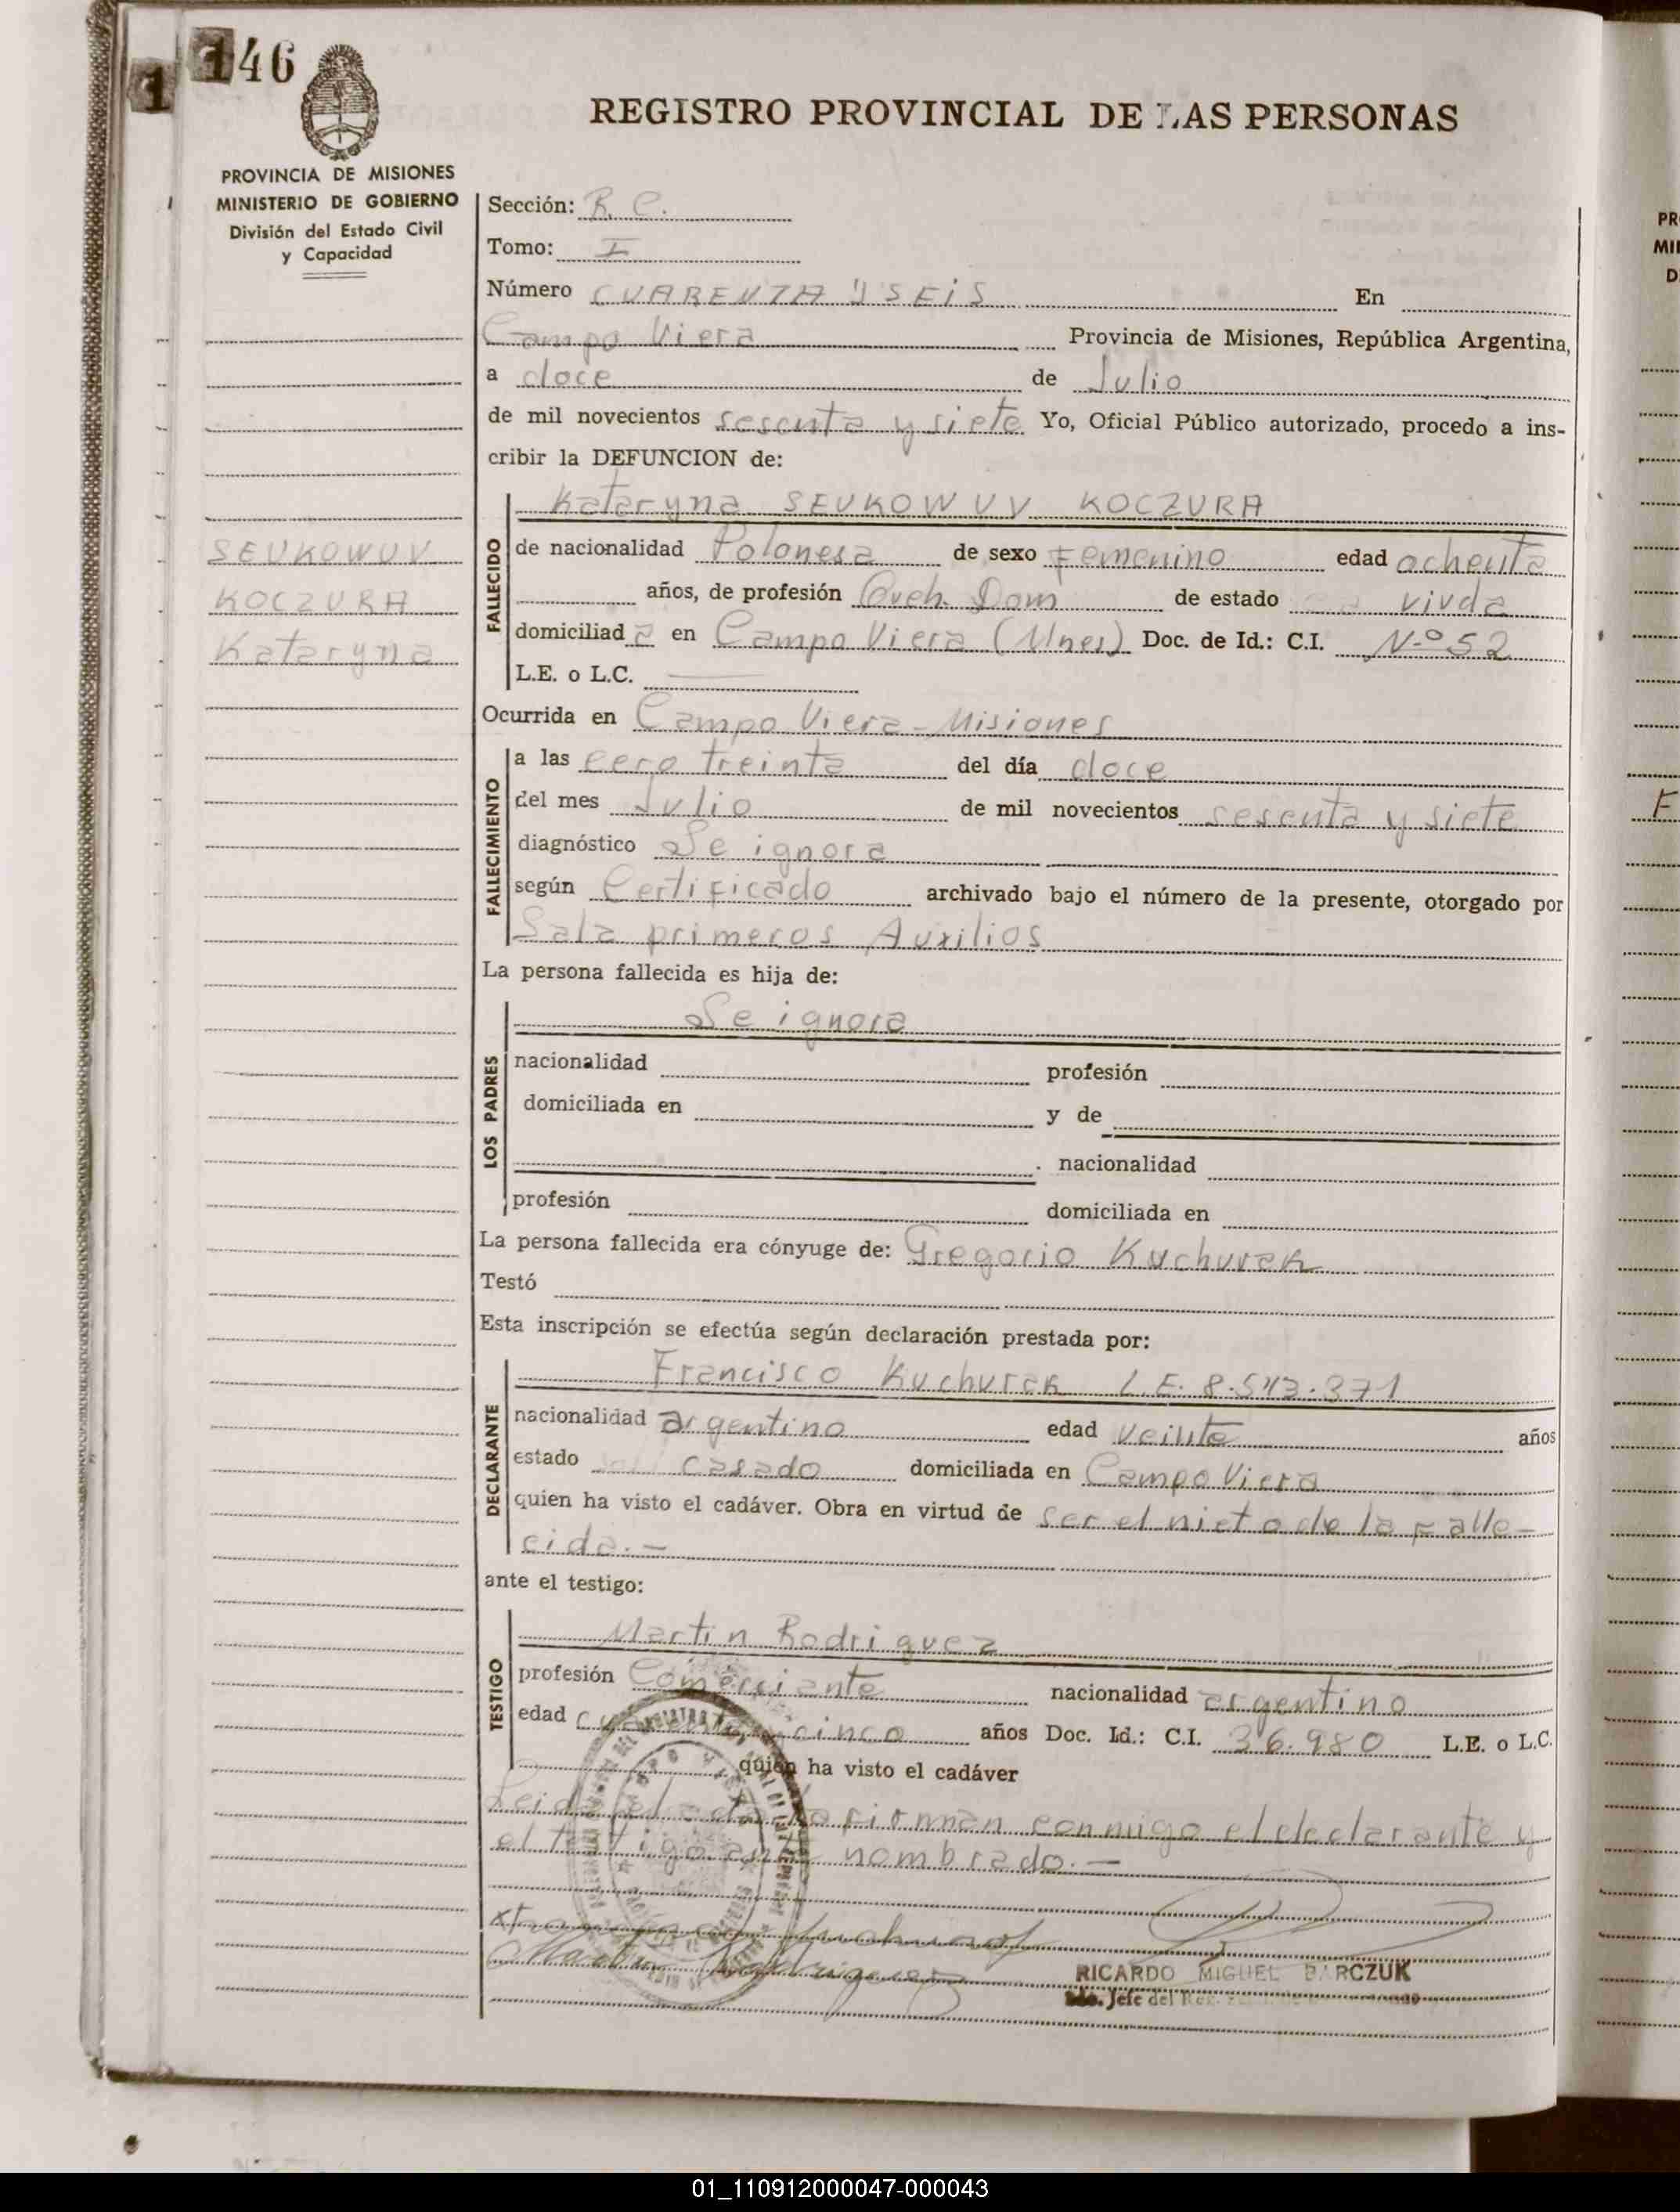 146
1
REGISTRO PROVINCIAL DE LAS PERSONAS
PROVINCIA DE MISIONES
MINISTERIO DE GOBIERNO
División del Estado Civil
y Capacidad
Sección: R. C.
Tomo: I
Número CUARENTA Y SEIS En
Campo Viera Provincia de Misiones, República Argentina,
a doce de Julio
de mil novecientos sesenta y siete Yo, Oficial Público autorizado, procedo a ins-
cribir la DEFUNCION de:
SEVKOWUV
KOCZURA
Kataryna
FALLECIDO
Kataryna SEVKOWUV KOCZURA
de nacionalidad Polonesa de sexo Femenino edad ochenta
años, de profesión Dom de estado viuda
domiciliad a en Campo Viera (Mnes) Doc. de Id.: C.I. Nº 52
L.E. o L.C.
Ocurrida en Campo Viera - Misiones
FALLECIMIENTO
a las cero treinta del día doce
del mes Julio de mil novecientos sesenta y siete
diagnóstico Se ignora
según Certificado archivado bajo el número de la presente, otorgado por
Sala primeros Auxilios
La persona fallecida es hija de:
LOS PADRES
Se ignora
nacionalidad profesión
domiciliada en y de
nacionalidad
profesión domiciliada en
La persona fallecida era cónyuge de: Gregorio Kuchurak
Testó
Esta inscripción se efectúa según declaración prestada por:
DECLARANTE
Francisco Kuchurak L.E. 8.543.371
nacionalidad argentino edad veinte años
estado casado domiciliada en Campo Viera
quien ha visto el cadáver. Obra en virtud de ser el nieto de la falle-
cida.-
ante el testigo:
TESTIGO
Martin Rodriguez
profesión Comerciante nacionalidad argentino
edad cinco años Doc. Id.: C.I. 36.980 L.E. o L.C.
quien ha visto el cadáver
firman conmigo el declarante y
el testigo nombrado.-
Martin Rodriguez
RICARDO MIGUEL BARCZUK
Jefe del Reg.
01_110912000047-000043